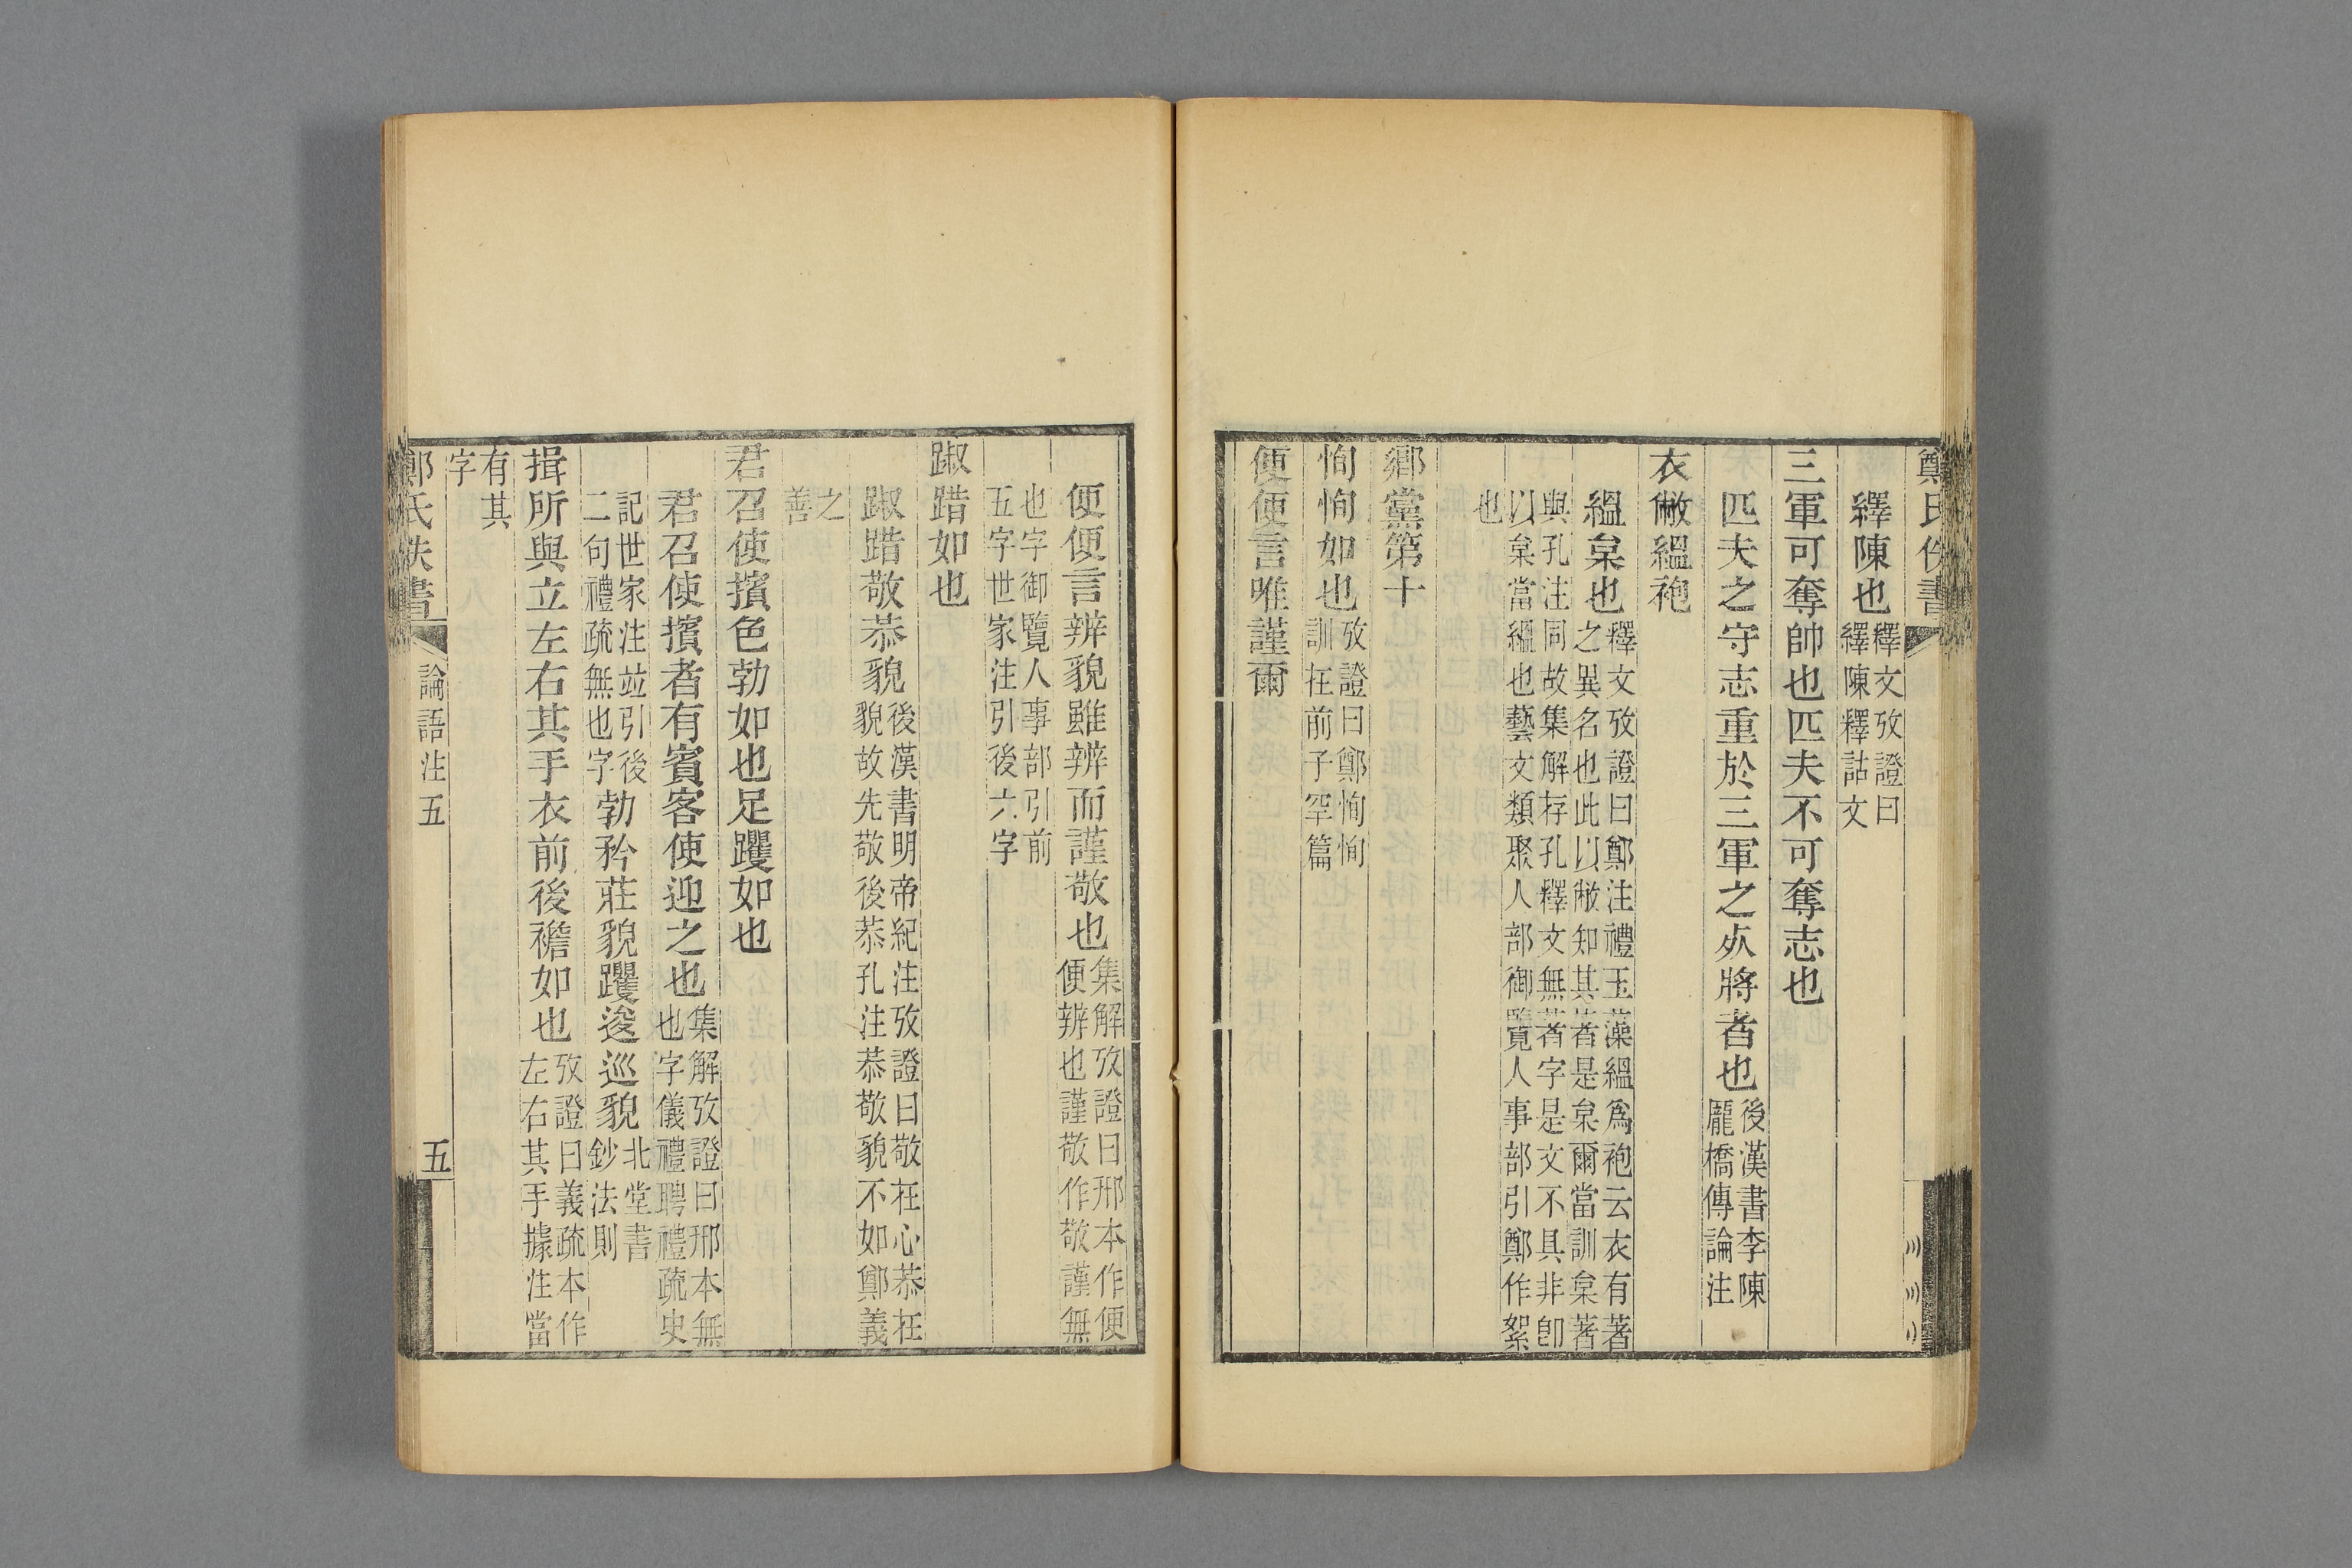 鄭氏佚書
繹陳也釋文攷證曰
繹陳釋詁文
三軍可奪帥也匹夫不可奪志也
匹夫之守志重於三軍之死將者也後漢書李陳
龐橋傳論注
衣敝縕袍
縕枲也釋文攷證曰鄭注禮玉藻縕爲袍云衣有著
之異名也此以敝知其著是枲爾當訓枲著
與孔注同故集解存孔釋文無著字是文不具非卽
以枲當縕也藝文類聚人部御覽人事部引鄭作絮
也
鄉黨第十
恂恂如也攷證曰鄭恂恂
訓在前子罕篇
便便言唯謹爾
便便言辨貌雖辨而謹敬也集解攷證曰邢本作便
便辨也謹敬作敬謹無
也字御覽人事部引前
五字世家注引後六字
踧踖如也
踧踖敬恭貌後漢書明帝紀注攷證曰敬在心恭在
貌故先敬後恭孔注恭敬貌不如鄭義
之
善
君召使擯色勃如也足躩如也
君召使擯者有賓客使迎之也集解攷證曰邢本無
也字儀禮聘禮疏史
記世家注竝引後
二句禮疏無也字
勃矜莊貌躩逡巡貌北堂書
鈔法則
揖所與立左右其手衣前後襜如也攷證曰義疏本作
左右其手據注當
有其
字
鄭氏佚書
論語注五
五